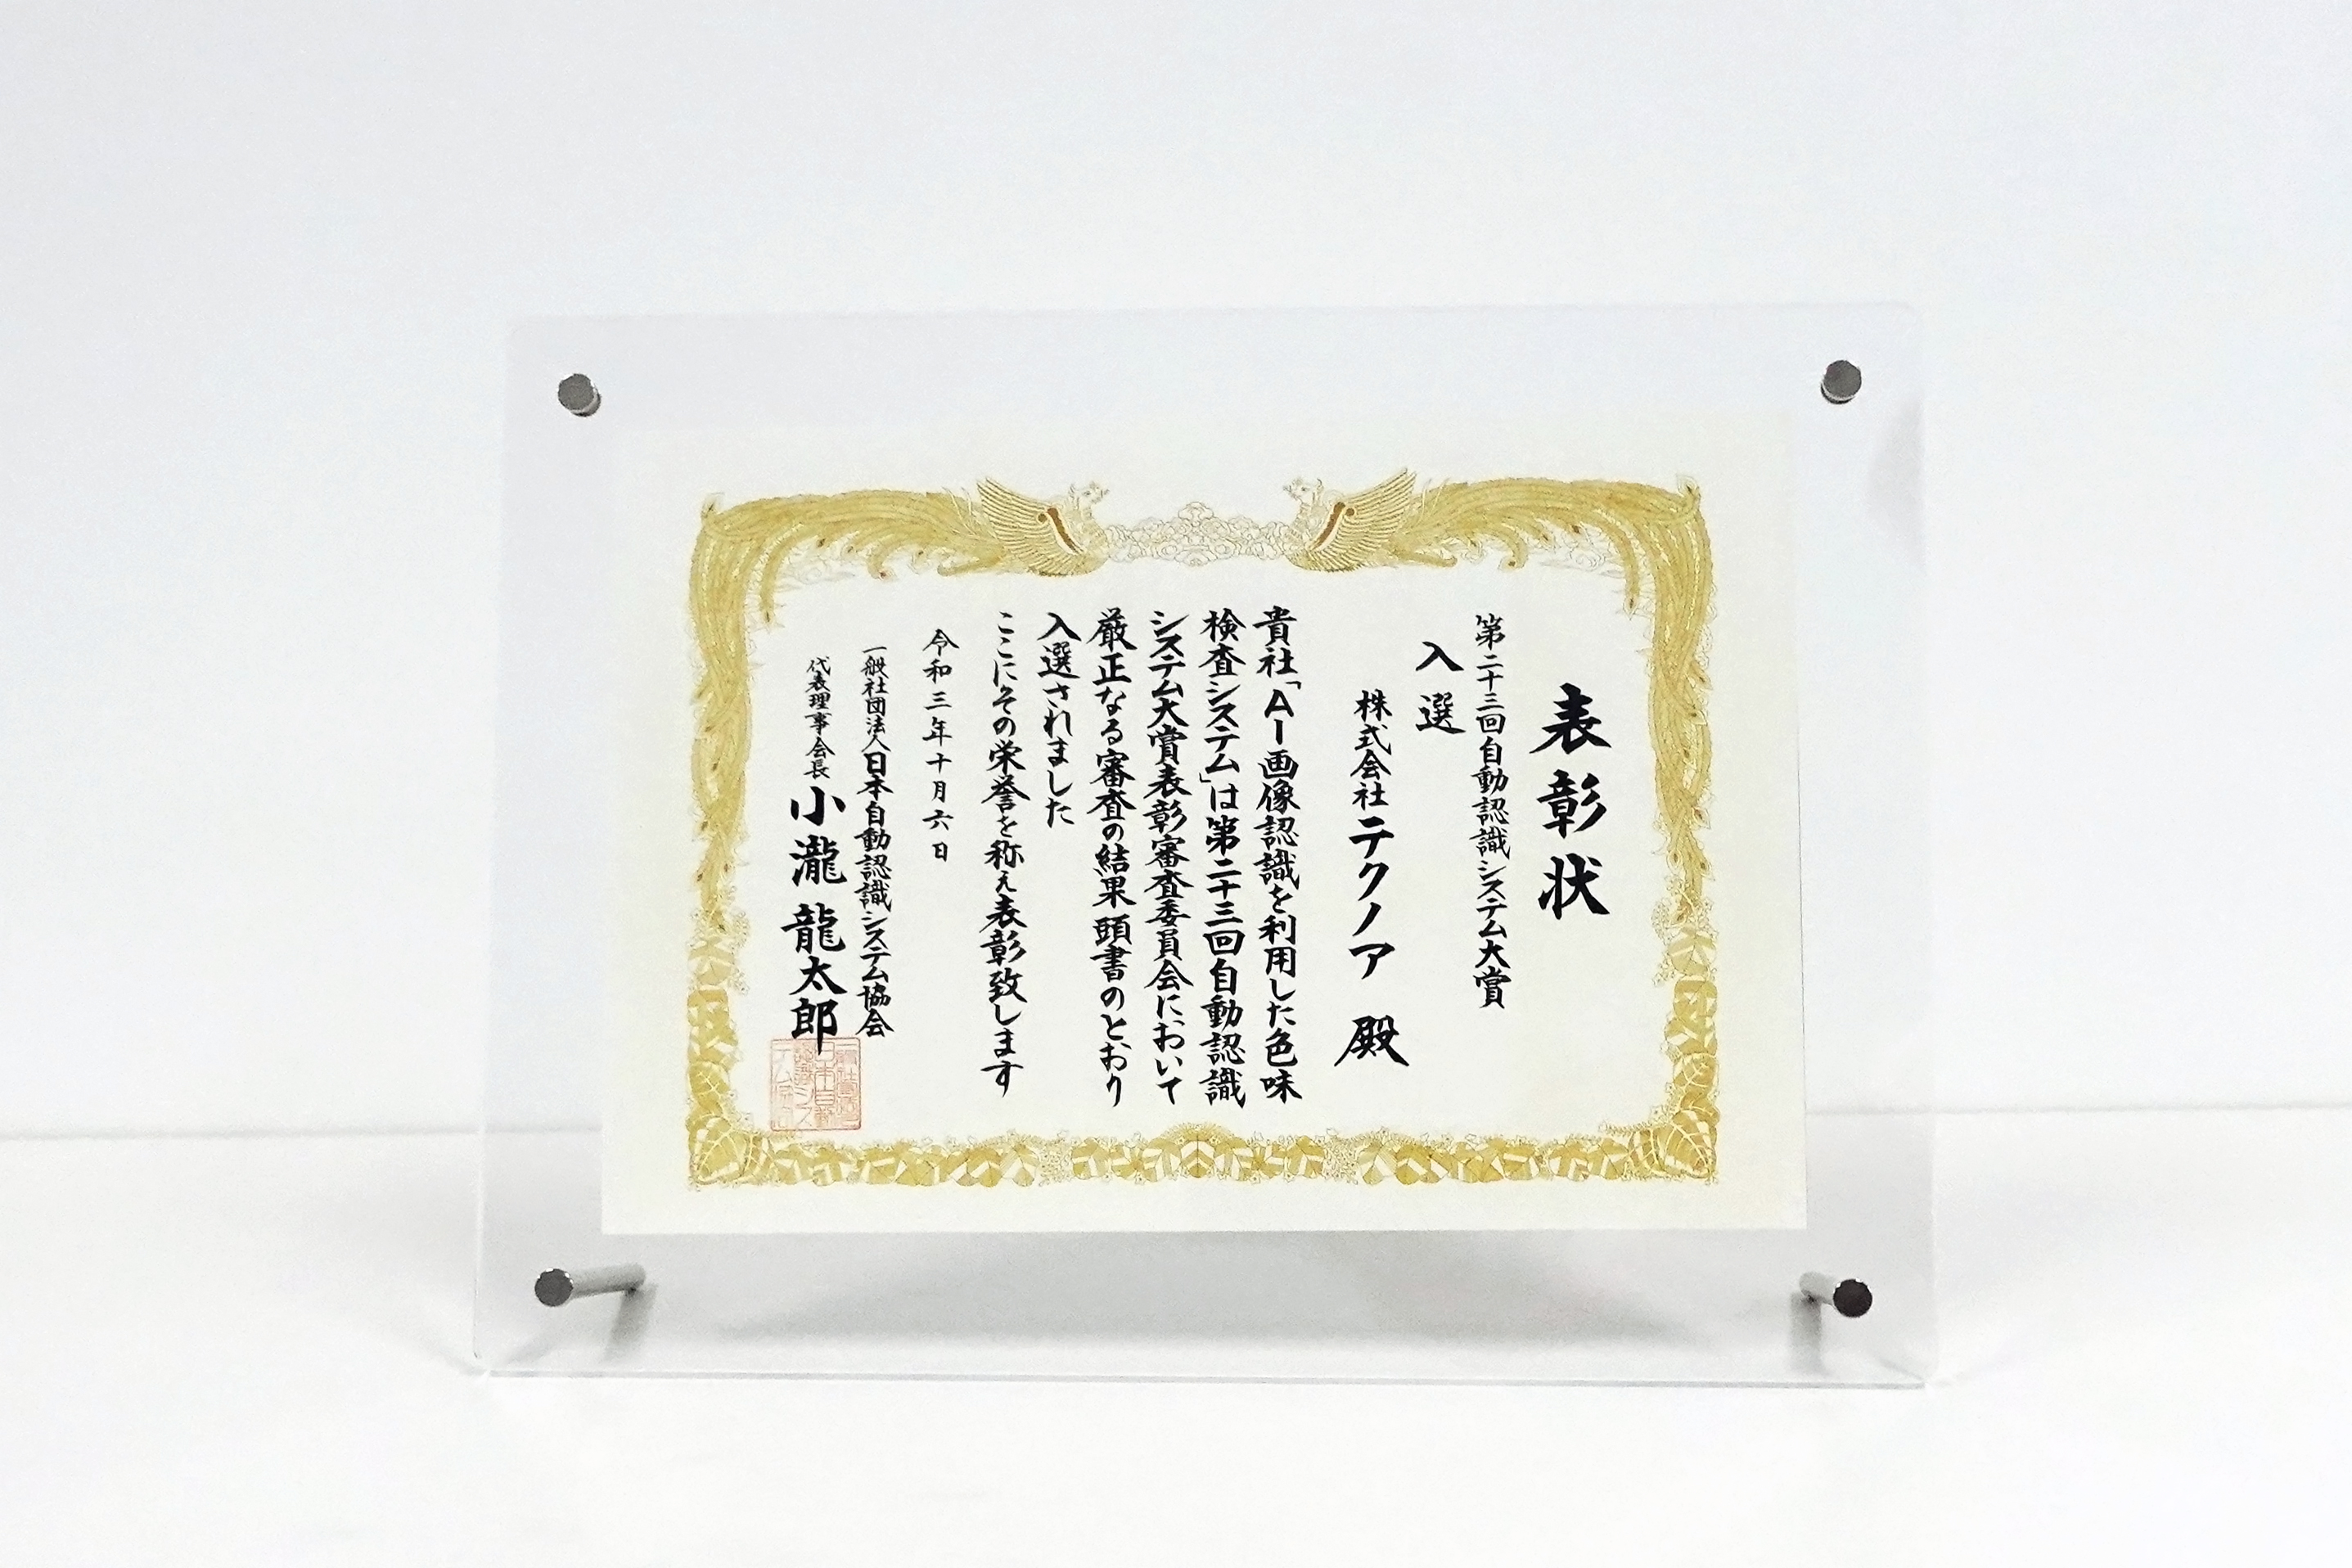 表彰状
第二十三回自動認識システム大賞
入選
株式会社テクノア 殿
貴社「AI画像認識を利用した色味
検査システム」は第二十三回自動認識
システム大賞表彰審査委員会において
厳正なる審査の結果 頭書のとおり
入選されました
ここにその栄誉を称え表彰致します
令和三年十月六日
一般社団法人日本自動認識システム協会
代表理事会長 小瀧 龍太郎